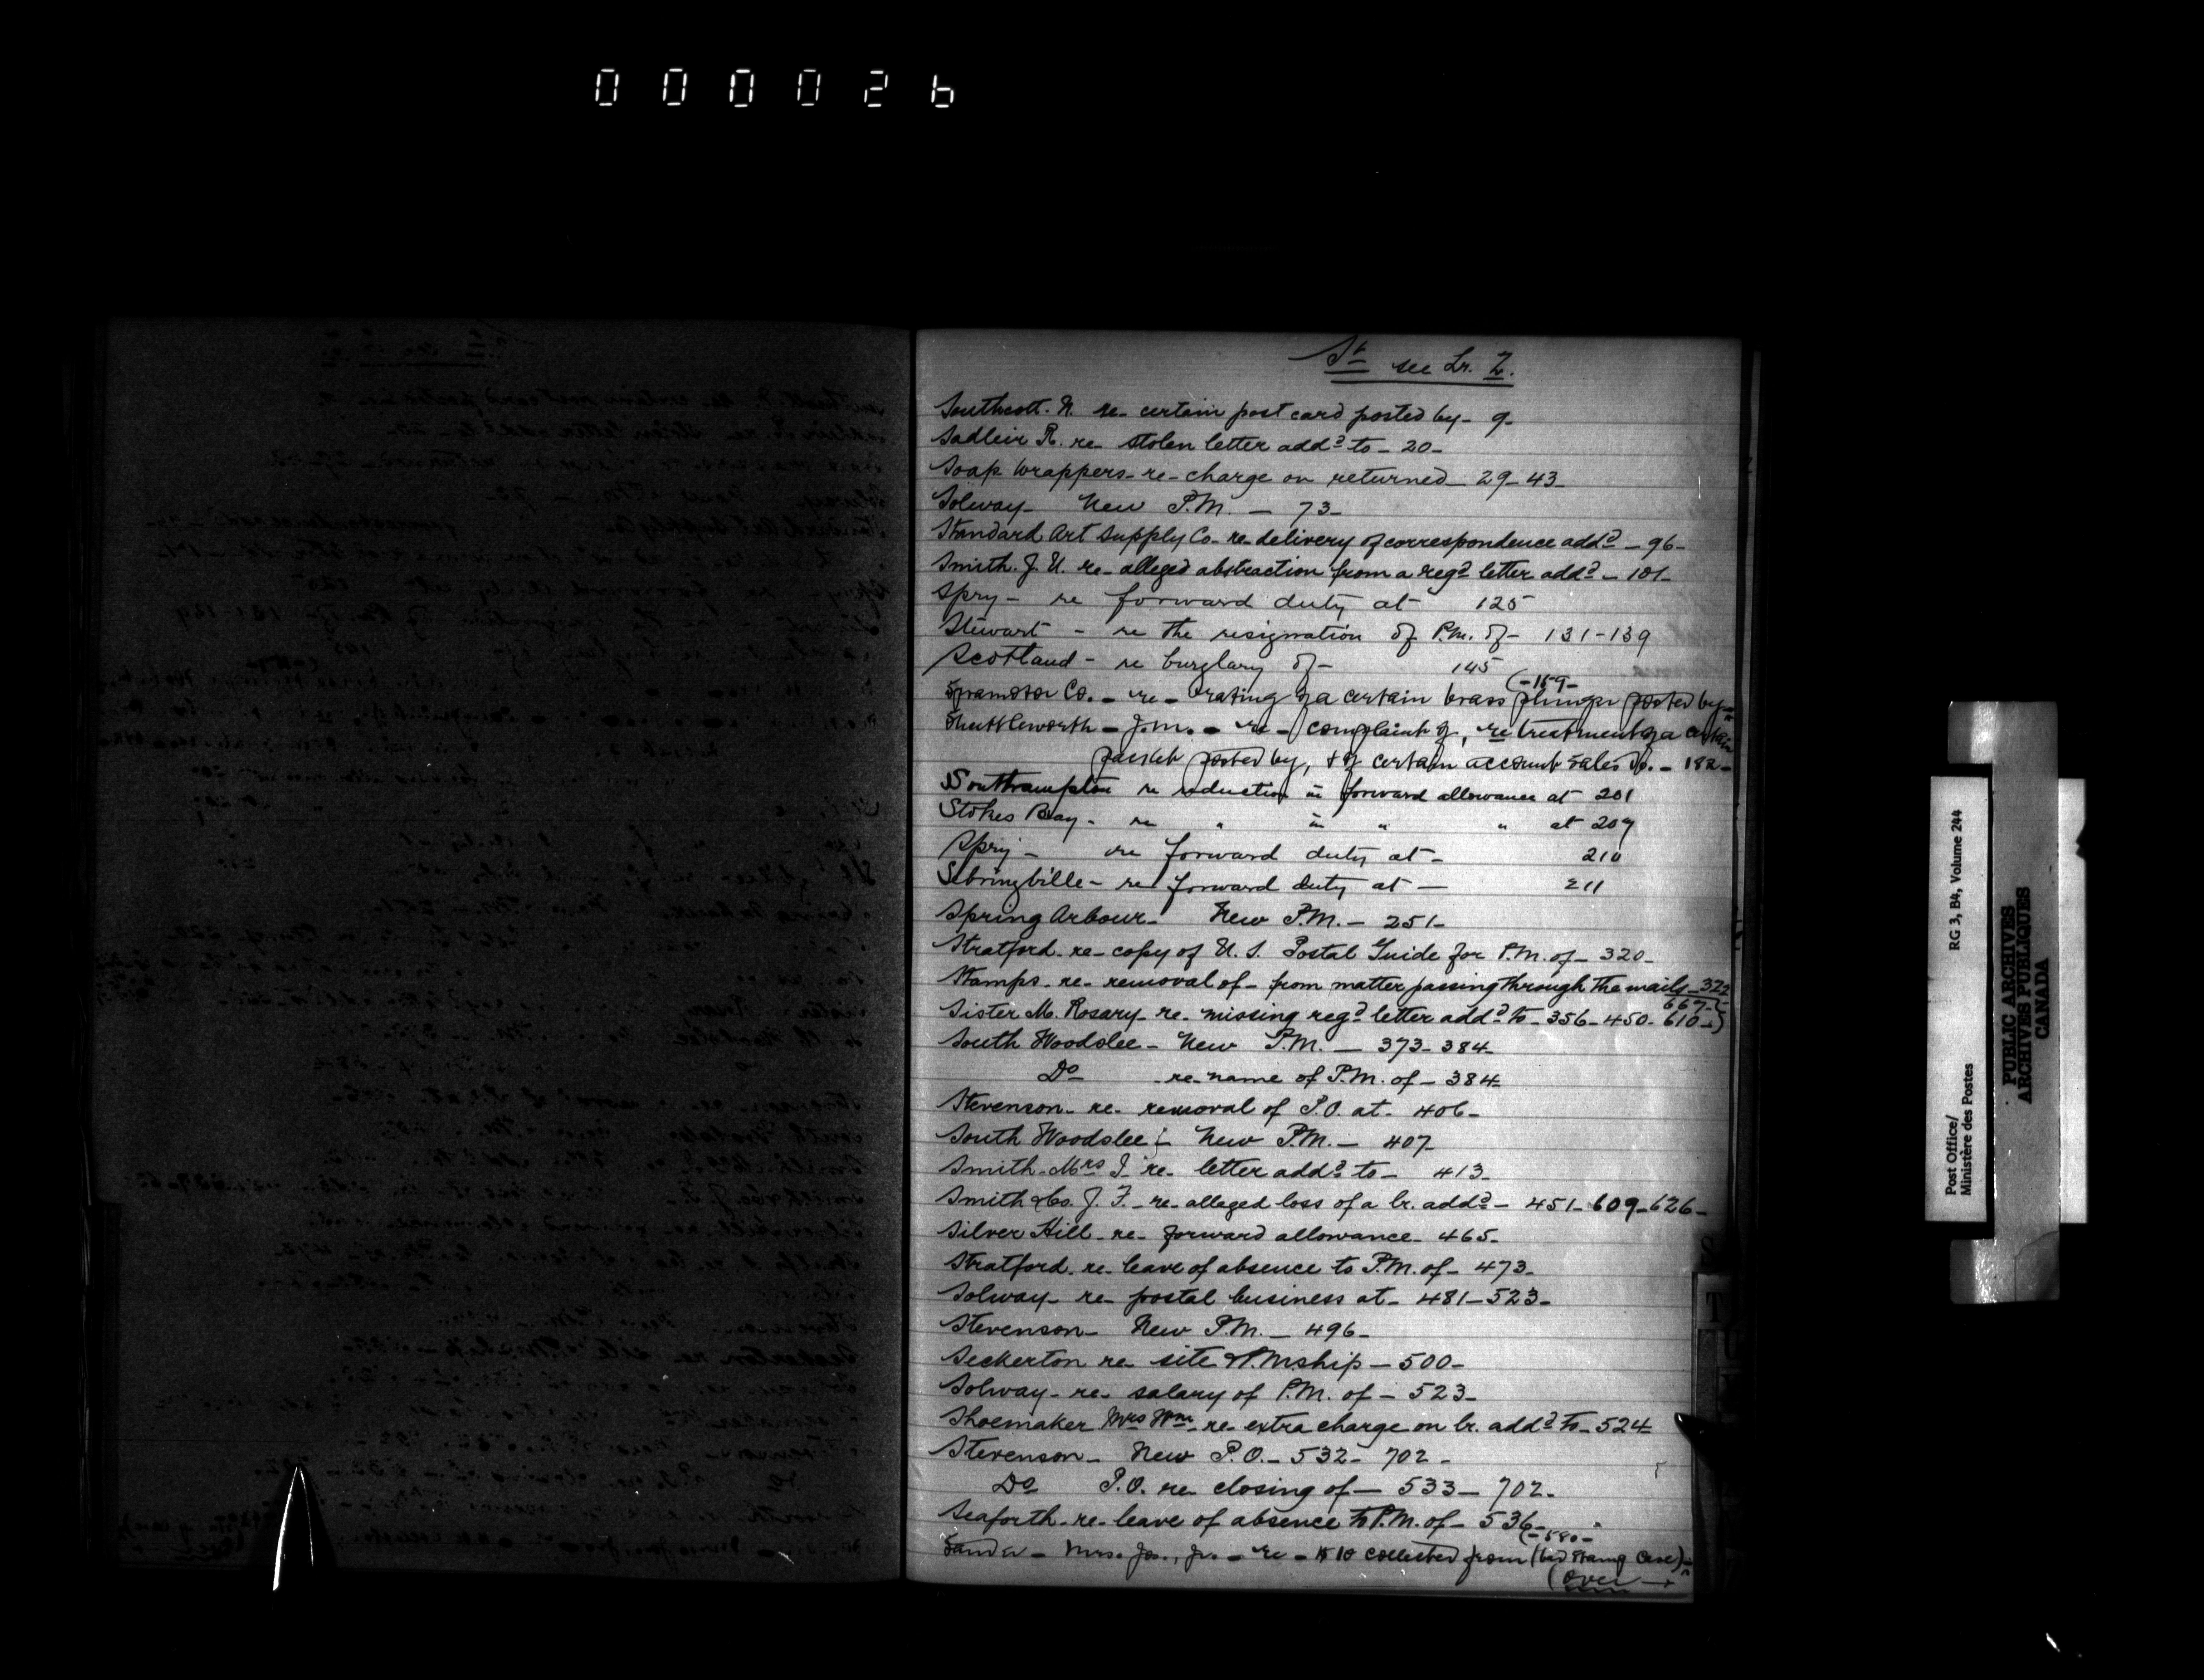 000026
St see Lr. Z.
Southcott. N. re- certain post card posted by- 9-
Sadleir R. re- stolen letter addd to- 20-
Soap Wrappers- re- charge on returned- 29- 43-
Solway- New P.M. - 73-
Standard Art Supply Co- re- delivery of correspondence addd - 96-
Smith. J. U. re- alleged abstraction from a regd letter addd - 101-
Spry - re forward duty at 125
Stewart - re the resignation of P.M. of - 131-139
Scotland - re burglary of - 145
Spramotor Co. - re - rating of a certain brass plunger posted by - (-159-
Shuttleworth - J.M. - re - complaint of, re treatment of a certain
packet posted by, & of certain account sales do. - 182-
Southampton re reduction in forward allowance at 201
Stokes Bay - re " in " " at 207
Spry - re forward duty at - 210
Sebringville - re forward duty at - 211
Spring Arbour- New P.M. - 251-
Stratford- re- copy of U.S. Postal Guide for P.M. of- 320-
Stamps- re- removal of- from matter passing through the mails- 322
667-
Sister M. Rosary- re- missing regd letter addd to- 356- 450- 610-}
South Woodslee- New P.M. - 373- 384-
Do - re- name of P.M. of - 384-
Stevenson- re- removal of P.O. at- 406-
South Woodslee - New P.M. - 407-
Smith- Mrs J- re- letter addd to- 413-
Smith & Co. J. F. - re- alleged loss of a lr. addd - 451- 609- 626-
Silver Hill- re- forward allowance- 465-
Stratford- re- leave of absence to P.M. of- 473-
Solway- re- postal business at- 481- 523-
Stevenson- New P.M. - 496-
Seckerton re- site & P.Mship - 500-
Solway- re- salary of P.M. of - 523-
Shoemaker Mrs Wm- re- extra charge on lr. addd to- 524-
Stevenson- New P.O. - 532- 702-
Do P.O. re- closing of - 533- 702-
Seaforth- re- leave of absence to P.M. of- 536-
- 580 -
Mrs. Jos., Jr. - re - collected from (bad stamp case)
(over →
S
T
U
Post Office/
Ministère des Postes
RG 3, B4, Volume 244
PUBLIC ARCHIVES
ARCHIVES PUBLIQUES
CANADA